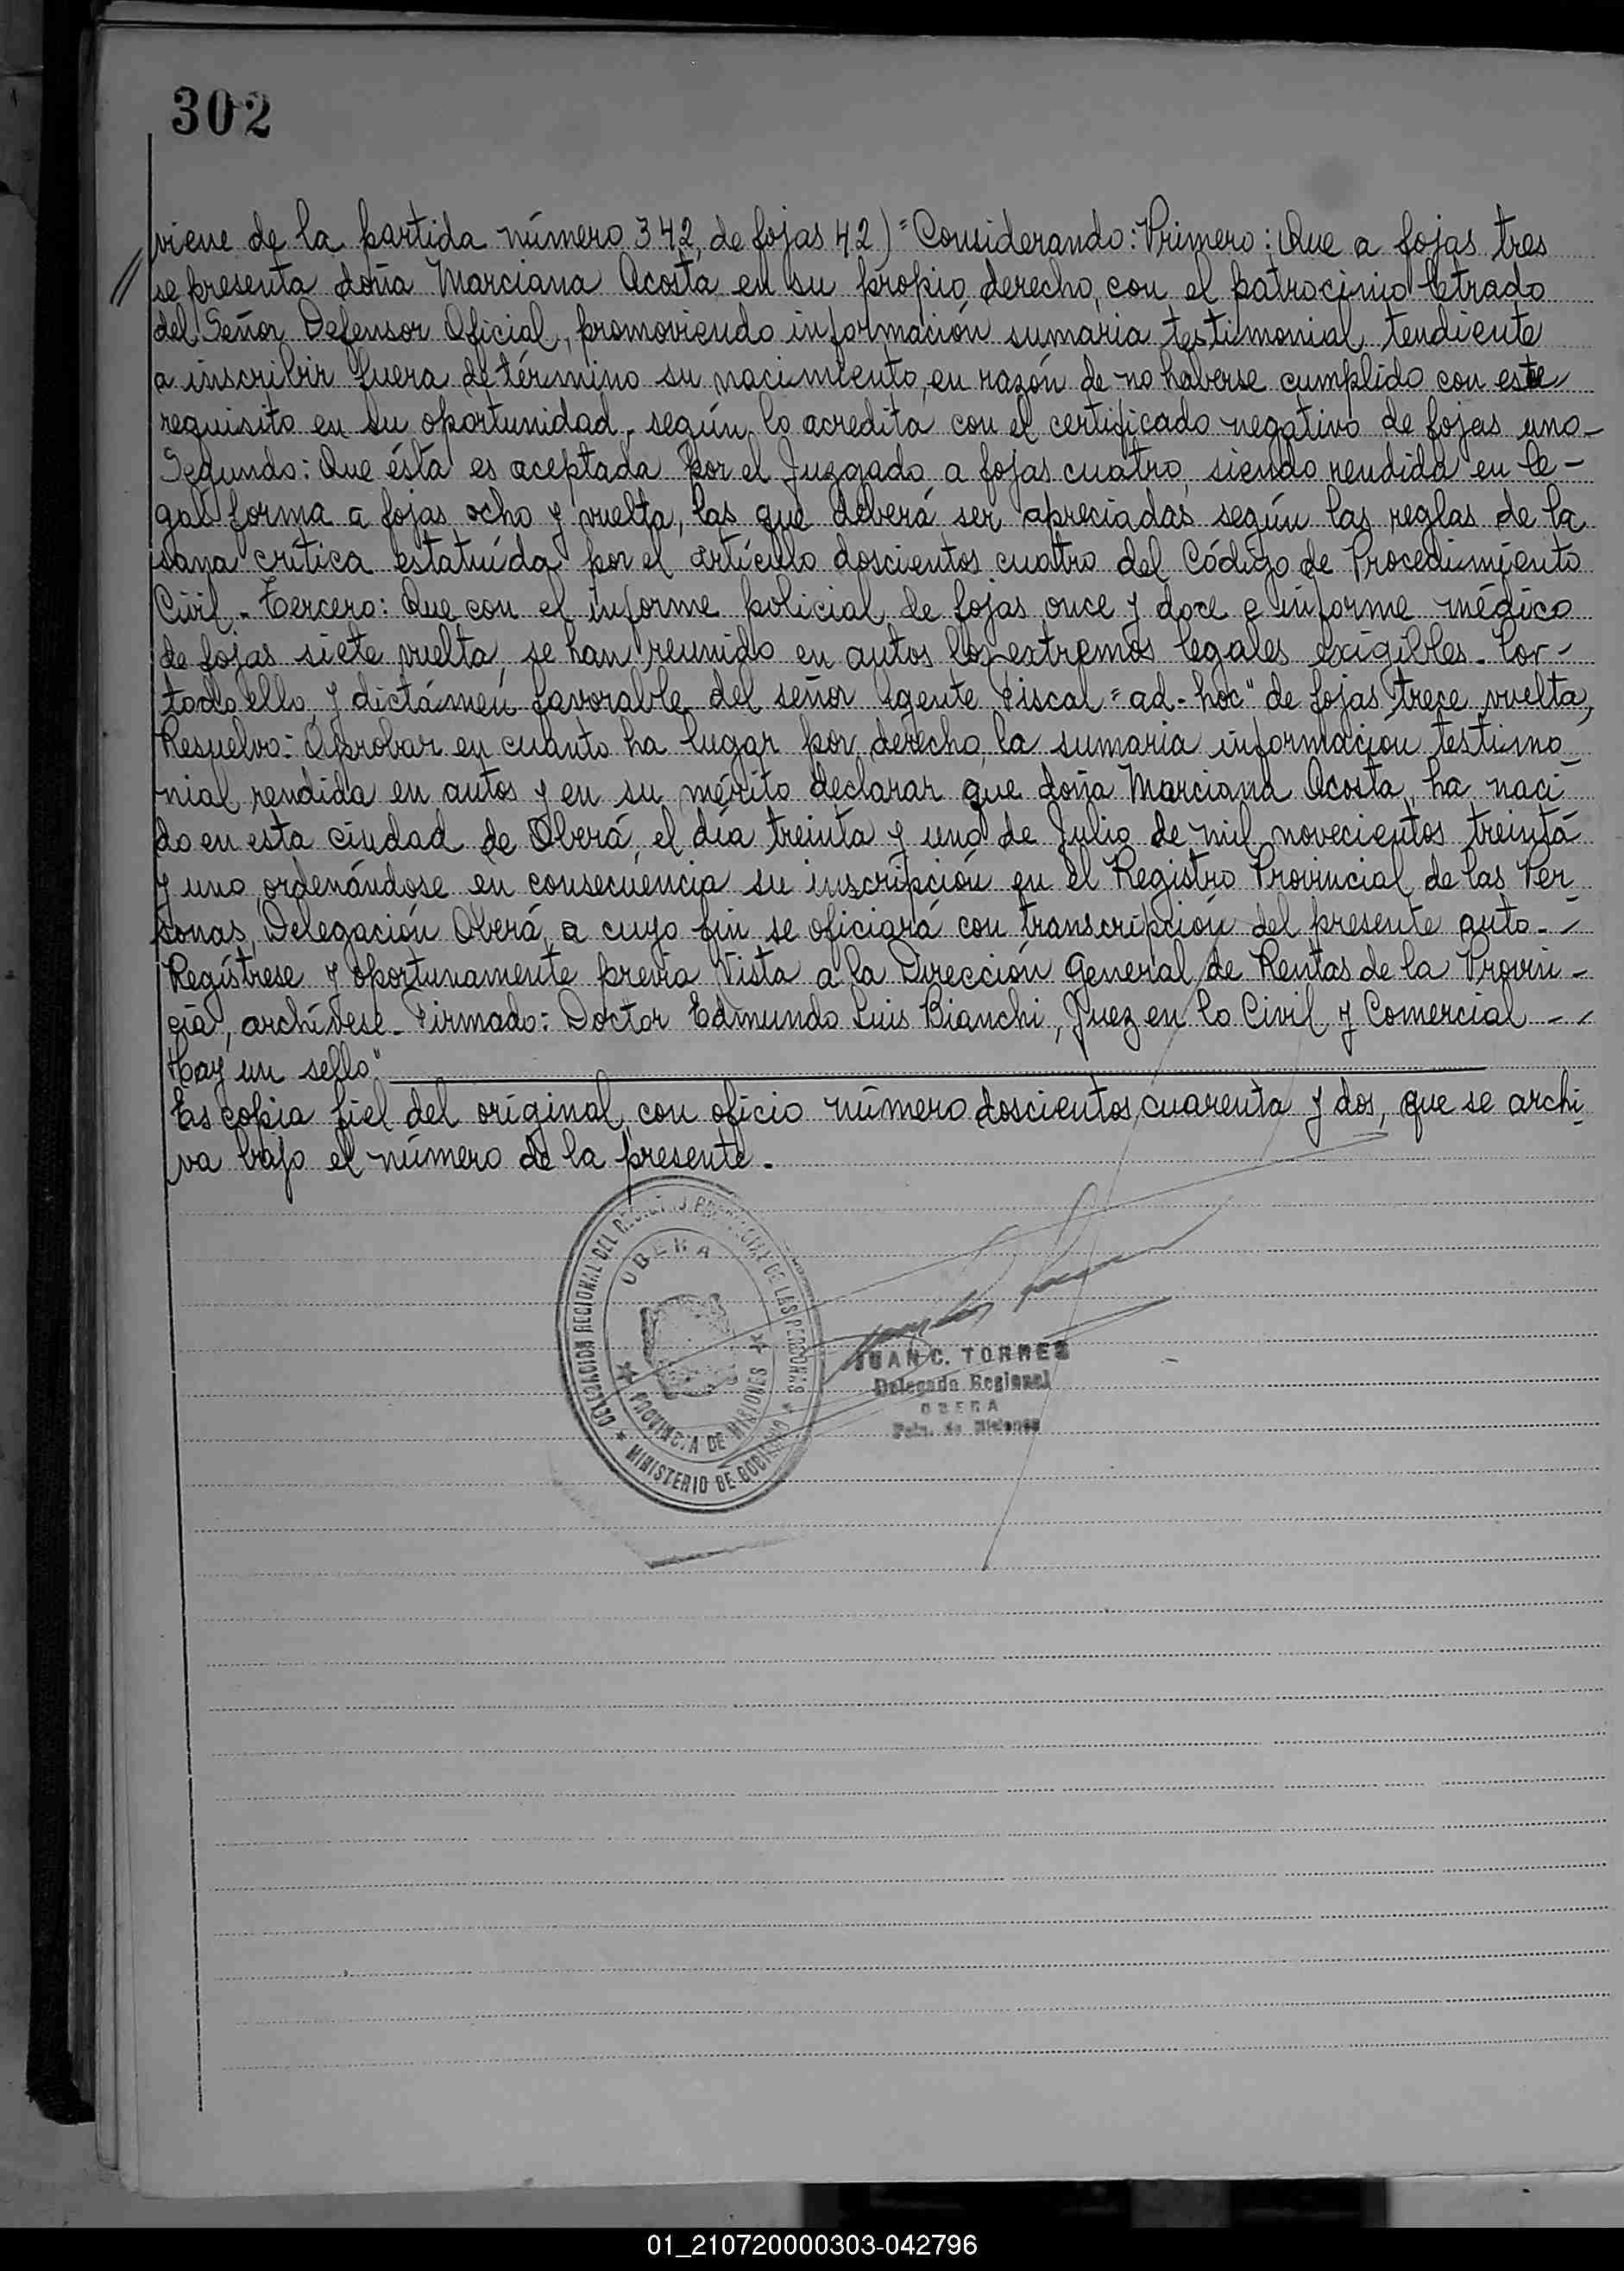 302
viene de la partida número 342, de fojas 42) = Considerando: Primero: Que a fojas tres
// se presenta doña Marciana Acosta en su propio derecho, con el patrocinio letrado
del Señor Defensor Oficial, promoviendo información sumaria testimonial tendiente
a inscribir fuera de término su nacimiento, en razón de no haberse cumplido con este
requisito en su oportunidad, según lo acredita con el certificado negativo de fojas uno-
Segundo: Que ésta es aceptada por el Juzgado a fojas cuatro, siendo rendida en le-
gal forma a fojas ocho y vuelta, las que deberá ser apreciadas según las reglas de la
sana crítica estatuída por el artículo doscientos cuatro del Código de Procedimiento
Civil. Tercero: Que con el informe policial de fojas once y doce e informe médico
de fojas siete vuelta, se han reunido en autos los extremos legales exigibles. Por-
todo ello y dictámen favorable del señor Agente Fiscal "ad-hoc" de fojas trece vuelta,
Resuelvo: Aprobar en cuanto ha lugar por derecho, la sumaria informacion testimo
nial rendida en autos y en su mérito declarar que doña Marciana Acosta, ha naci
do en esta ciudad de Oberá, el día treinta y uno de Julio de mil novecientos treinta
y uno, ordenándose en consecuencia su inscripción en el Registro Provincial de las Per
sonas, Delegación Oberá, a cuyo fin se oficiará con transcripción del presente auto.-
Regístrese y oportunamente previa Vista a la Dirección General de Rentas de la Provin-
cia, archívese. Firmado: Doctor Edmundo Luis Bianchi, Juez en lo Civil y Comercial --
Hay un sello"
Es copia fiel del original, con oficio número doscientos cuarenta y dos, que se archi
va bajo el número de la presente.
DELEGACION REGIONAL DEL REGISTRO PROVINCIAL DE LAS PERSONAS
OBERA
PROVINCIA DE MISIONES
MINISTERIO DE GOBIERNO
JUAN C. TORRES
Delegado Regional
OBERA
Pcia. de Misiones
01_210720000303-042796